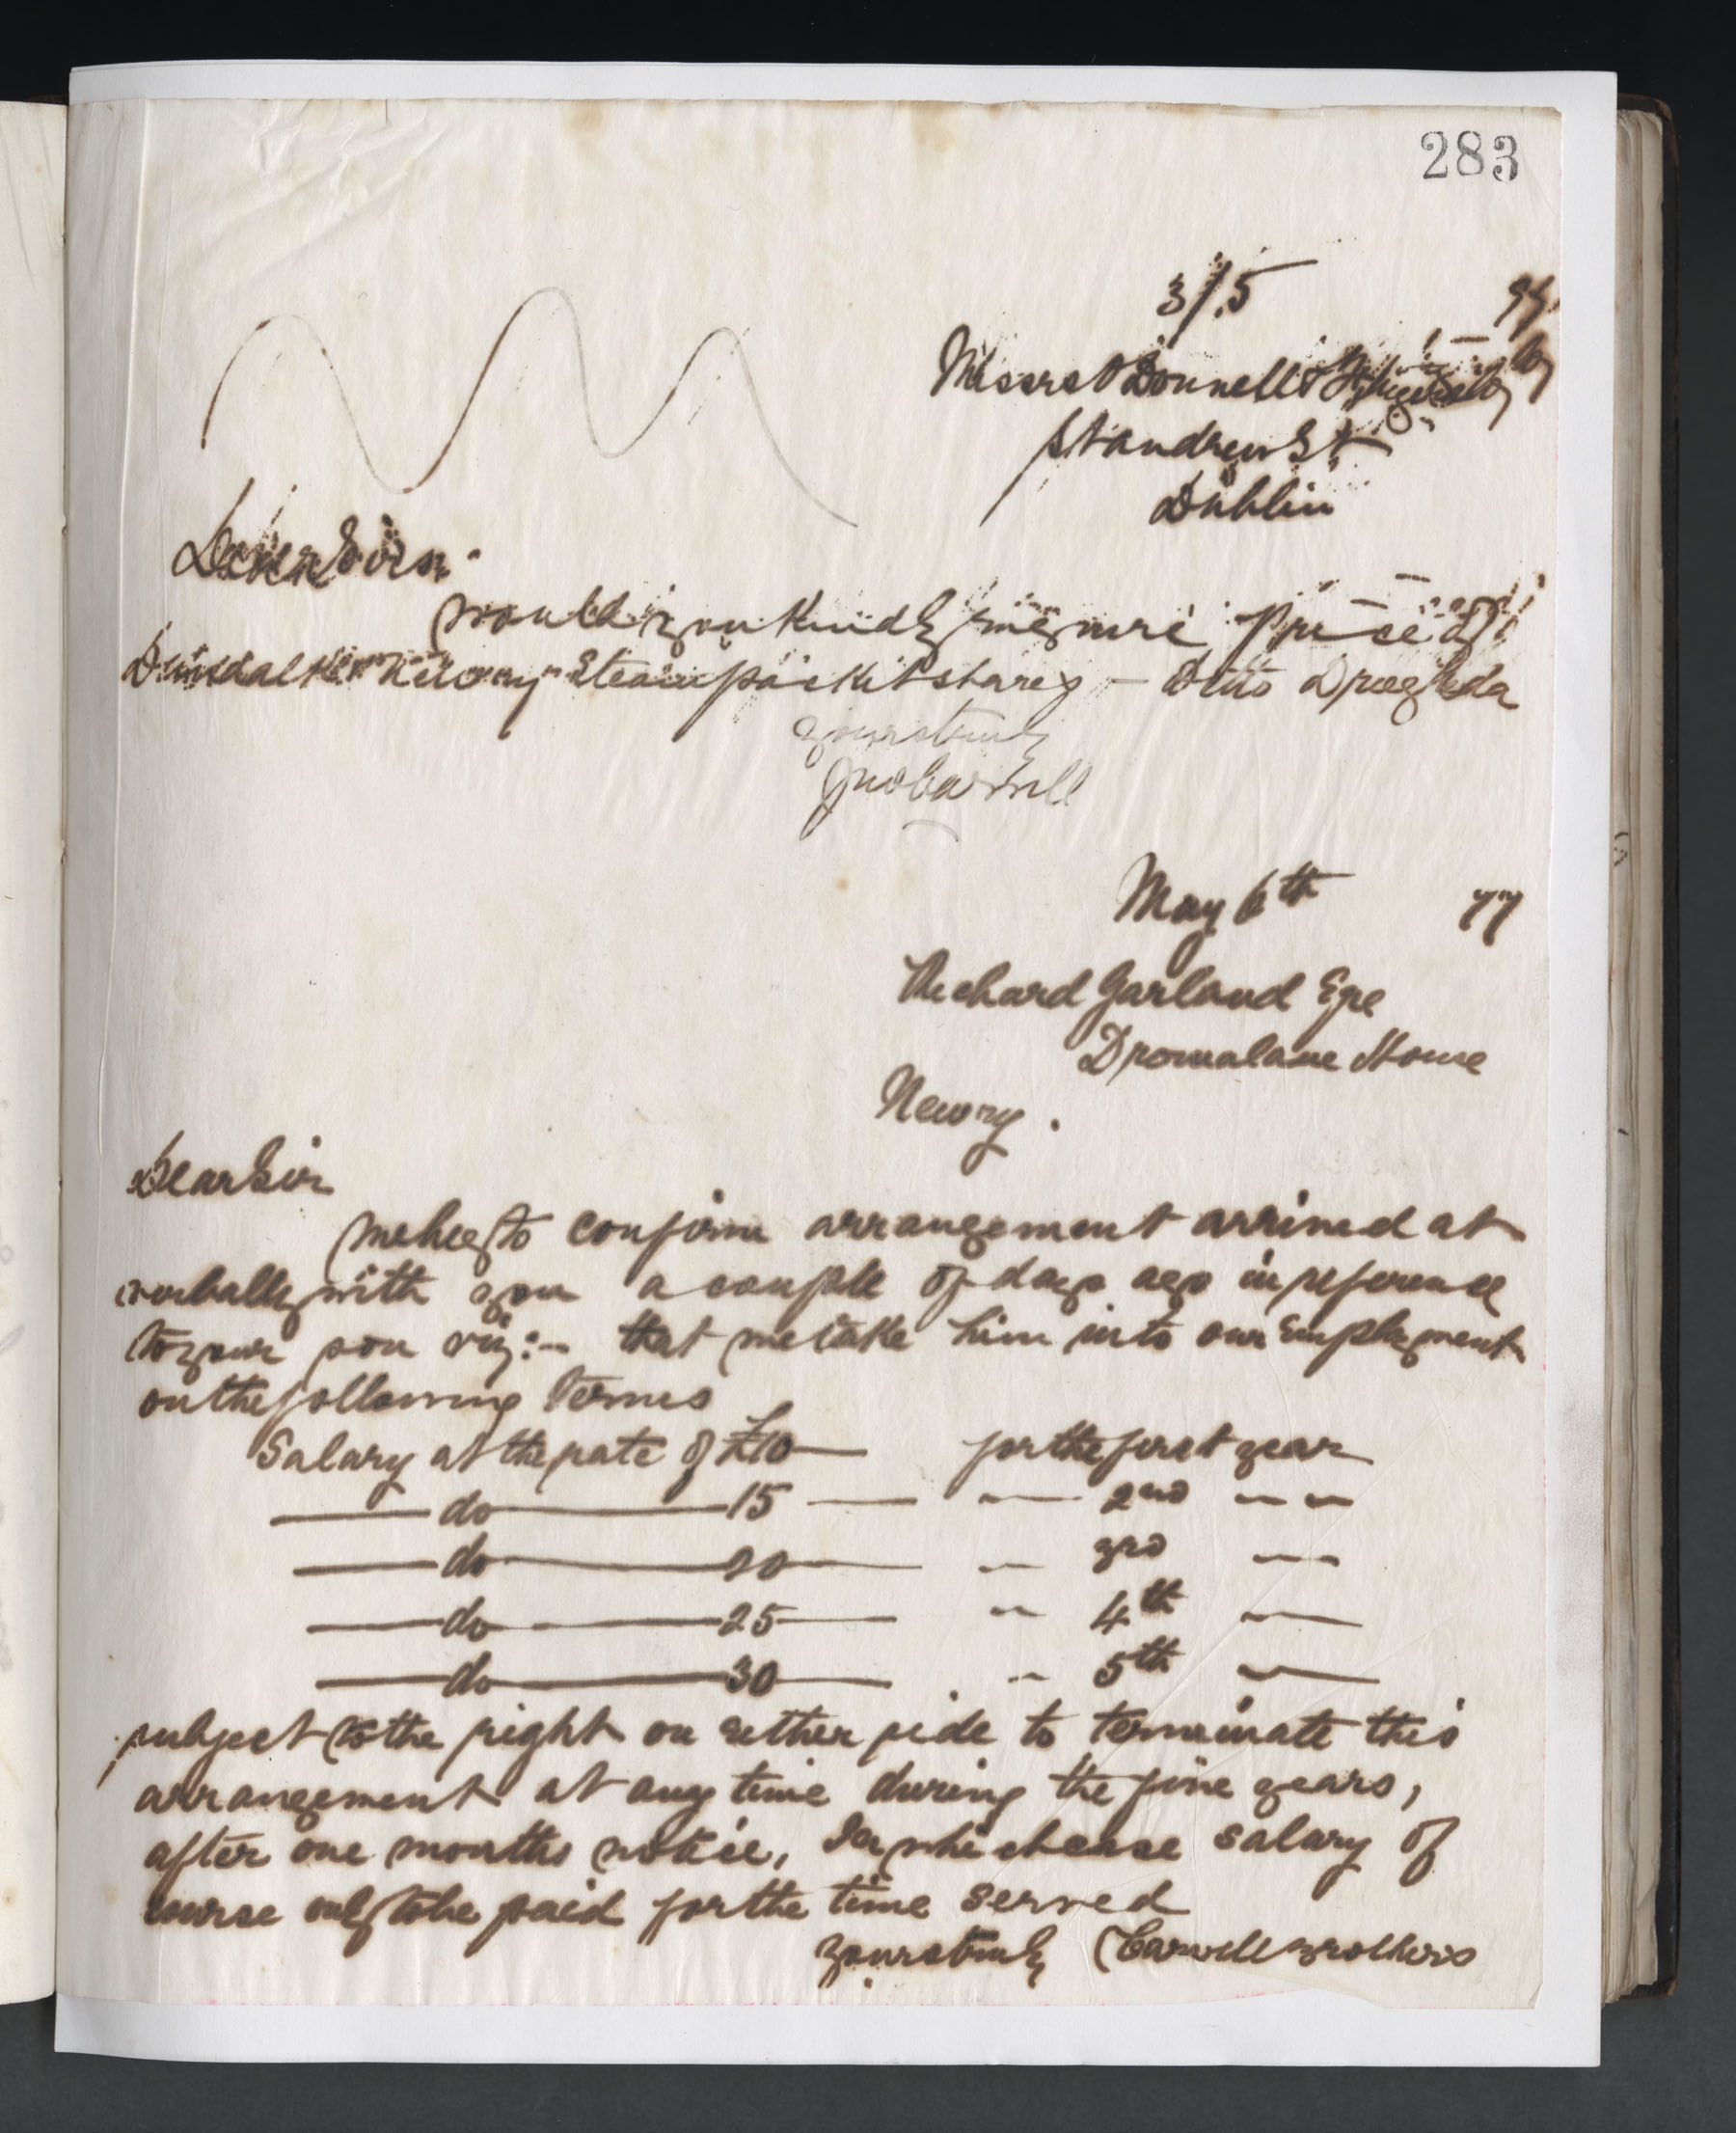 283
3/5 77
Messrs O'Donnell &
St Andrew St
Dublin
Dear Sirs.
Would you kindly give me Price of
Dundalk & Newry Steam packet shares — Ditto Drogheda
Yours truly
Jno Carvill
May 6th 77
Richard Garland Eqre
Dromalane House
Newry.
Dear Sir
We beg to confirm arrangement arrived at
verbally with you a couple of days ago in reference
to your son viz:— that we take him into our Employment
on the following Terms
Salary at the rate of £10 — for the first year
— do — 15 — — 2nd — —
— do — 20 — — 3rd —
— do — 25 — — 4th —
— do — 30 — — 5th —
subject to the right on either side to terminate this
arrangement at any time during the five years,
after one months notice, In which case salary of
course only to be paid for the time served
Yours truly Carvill Brothers